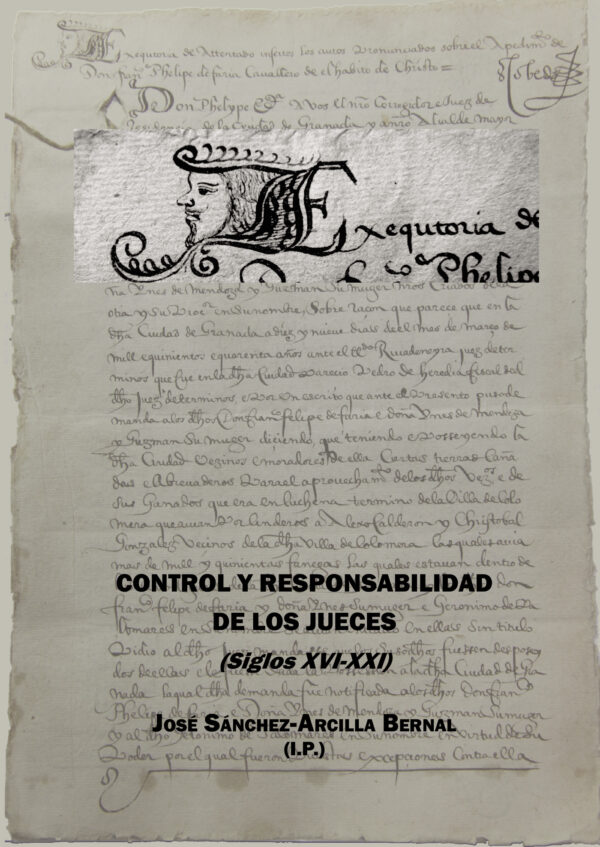 Exequtoria de Attentado insertos los autos Pronunciados sobre el Apedimto de
Don franco Phelipe de faria Cavallero de el habito de Christo =
Don Phelype
A vos el nro Corregidor e Juez de
Residencia de la Ciudad de Granada y a nro Alcalde mayor
Exequtoria de
Phelipe
Ynes de Mendoza y Guzman Su muger
en Su nombre, Sobre raçon que parece que en la
dha Ciudad de Granada a diez y nueve dias de el mes de março de
mill e quinientos e quarenta años ante el Juez de ter
minos que fue en la dha Ciudad Parecio Pedro de heredia fiscal del
dho juez de terminos e Por Un escrito que ante el Presento puso de
manda a los dhos Don fran felipe de faria e doña Ynes de Mendoza
y Guzman Su muger diciendo, que teniendo e Posseyendo la
dha Ciudad Vezinos e moradores de ella Ciertas tierras Caña
das e Abrevaderos Para el aprovechamto de los dhos Vezos e de
Sus Ganados que era en termino de la Villa de Colo
mera que avian Por linderos a Alexo Calderon y Christobal
Gonzalez Vecinos de la dha Villa de Colomera las quales avia
mas de mill y quinientas fanegas Las quales estavan dentro de
don
CONTROL Y RESPONSABILIDAD
fran felipe de faria y doña Ynes Su muger e Geronimo de Pa
DE LOS JUECES
lomares en ellas Sin titulo
Pidio al dho Juez fuessen despose
(Siglos XVI-XXI)
dos de ellas a la dha Ciudad de Gra
nada la qual dha demanda fue notificada a los dhos Don fran
JOSÉ SÁNCHEZ-ARCILLA BERNAL
Phelipe de faria e Doña Ynes de Mendoza y Guzman Su muger
(I.P.)
y al dho Geronimo de Palomares en Su nombre en virtud de Su
Poder por el qual fueron excepciones Contra ella